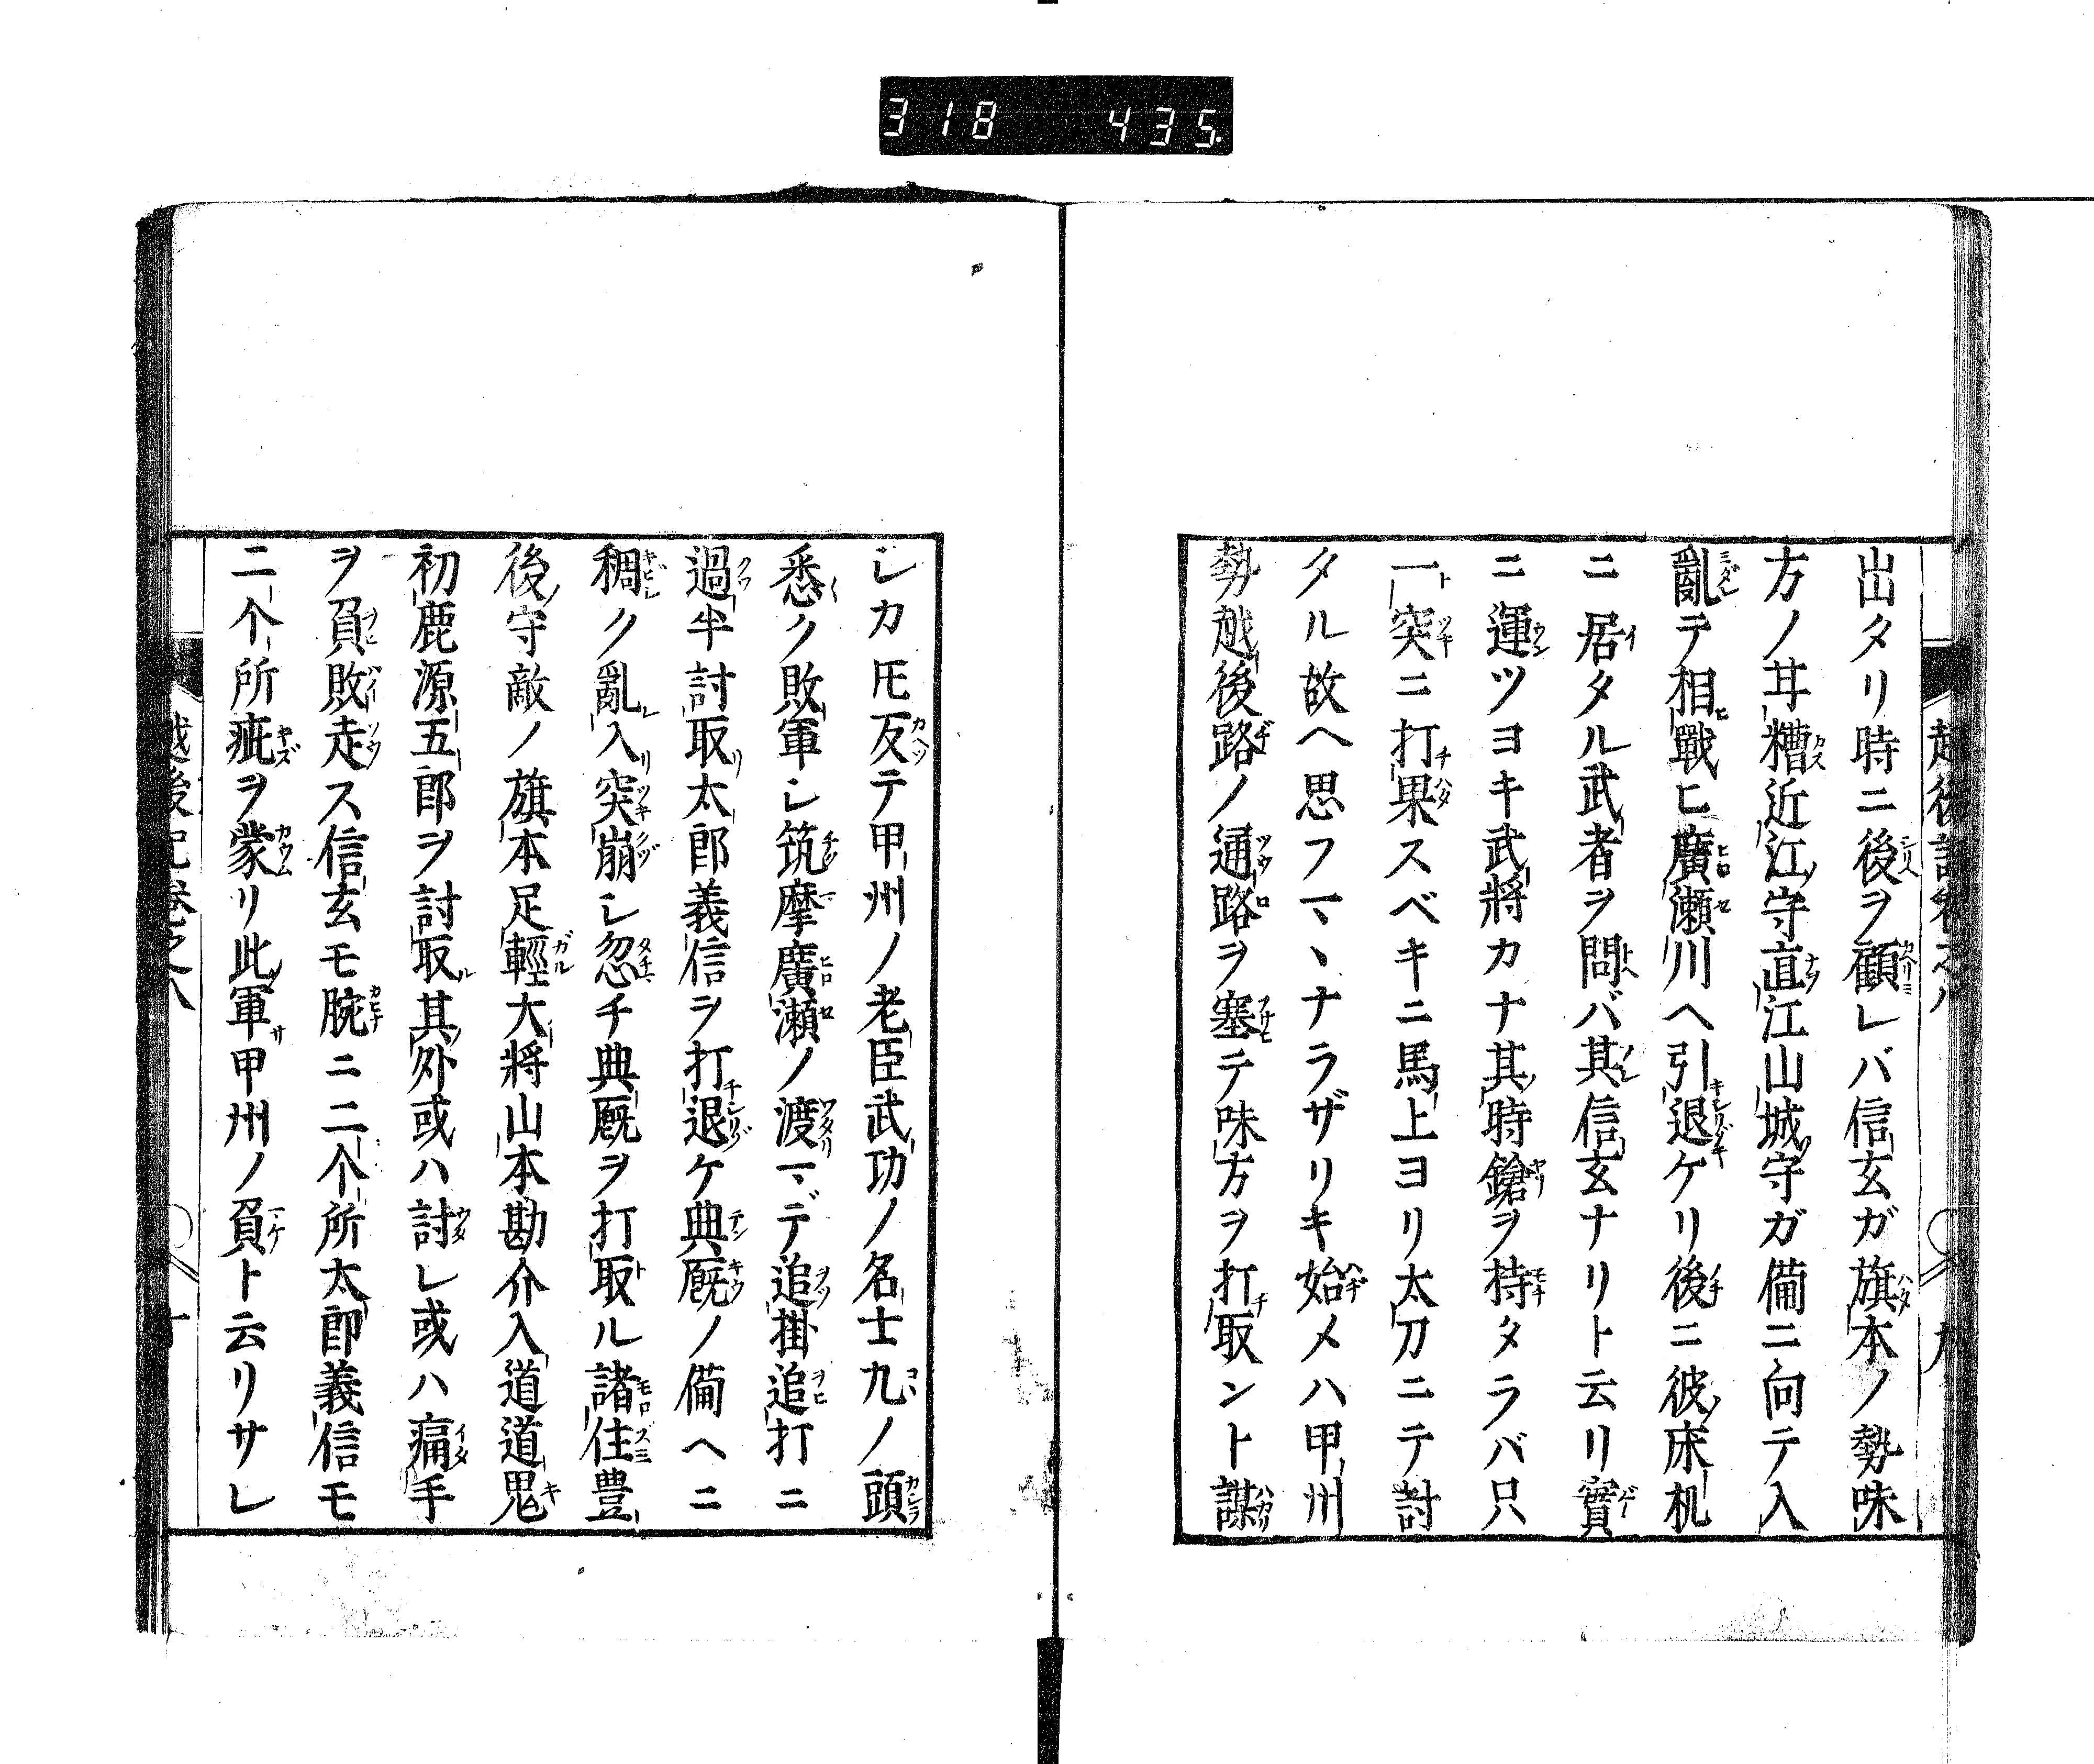 318 435
出タリ時ニ後ヲ顧レバ信玄ガ旗本ノ勢味
方ノ甘糟近江守直江山城守ガ備ニ向テ入
亂テ相戰ヒ廣瀬川ヘ引退ケリ後ニ彼床机
ニ居タル武者ヲ問バ其信玄ナリト云リ實
ニ運ツヨキ武將カナ其時鎗ヲ持タラバ只
一突ニ打果スベキニ馬上ヨリ太刀ニテ討
タル故ヘ思フマヽナラザリキ始メハ甲州
勢越後路ノ通路ヲ塞テ味方ヲ打取ント謀
シカ𪜈反テ甲州ノ老臣武功ノ名士九ノ頭
悉ク敗軍シ筑摩廣瀬ノ渡マデ追掛追打ニ
過半討取太郎義信ヲ打退ケ典厩ノ備ヘニ
稠ク亂入突崩シ忽チ典厩ヲ打取ル諸住豊
後守敵ノ旗本足輕大將山本勘介入道道鬼
初鹿源五郎ヲ討取其外或ハ討レ或ハ痛手
ヲ負敗走ス信玄モ腕ニ二个所太郎義信モ
二个所疵ヲ蒙リ此軍甲州ノ負ト云リサレ
越後記巻之八